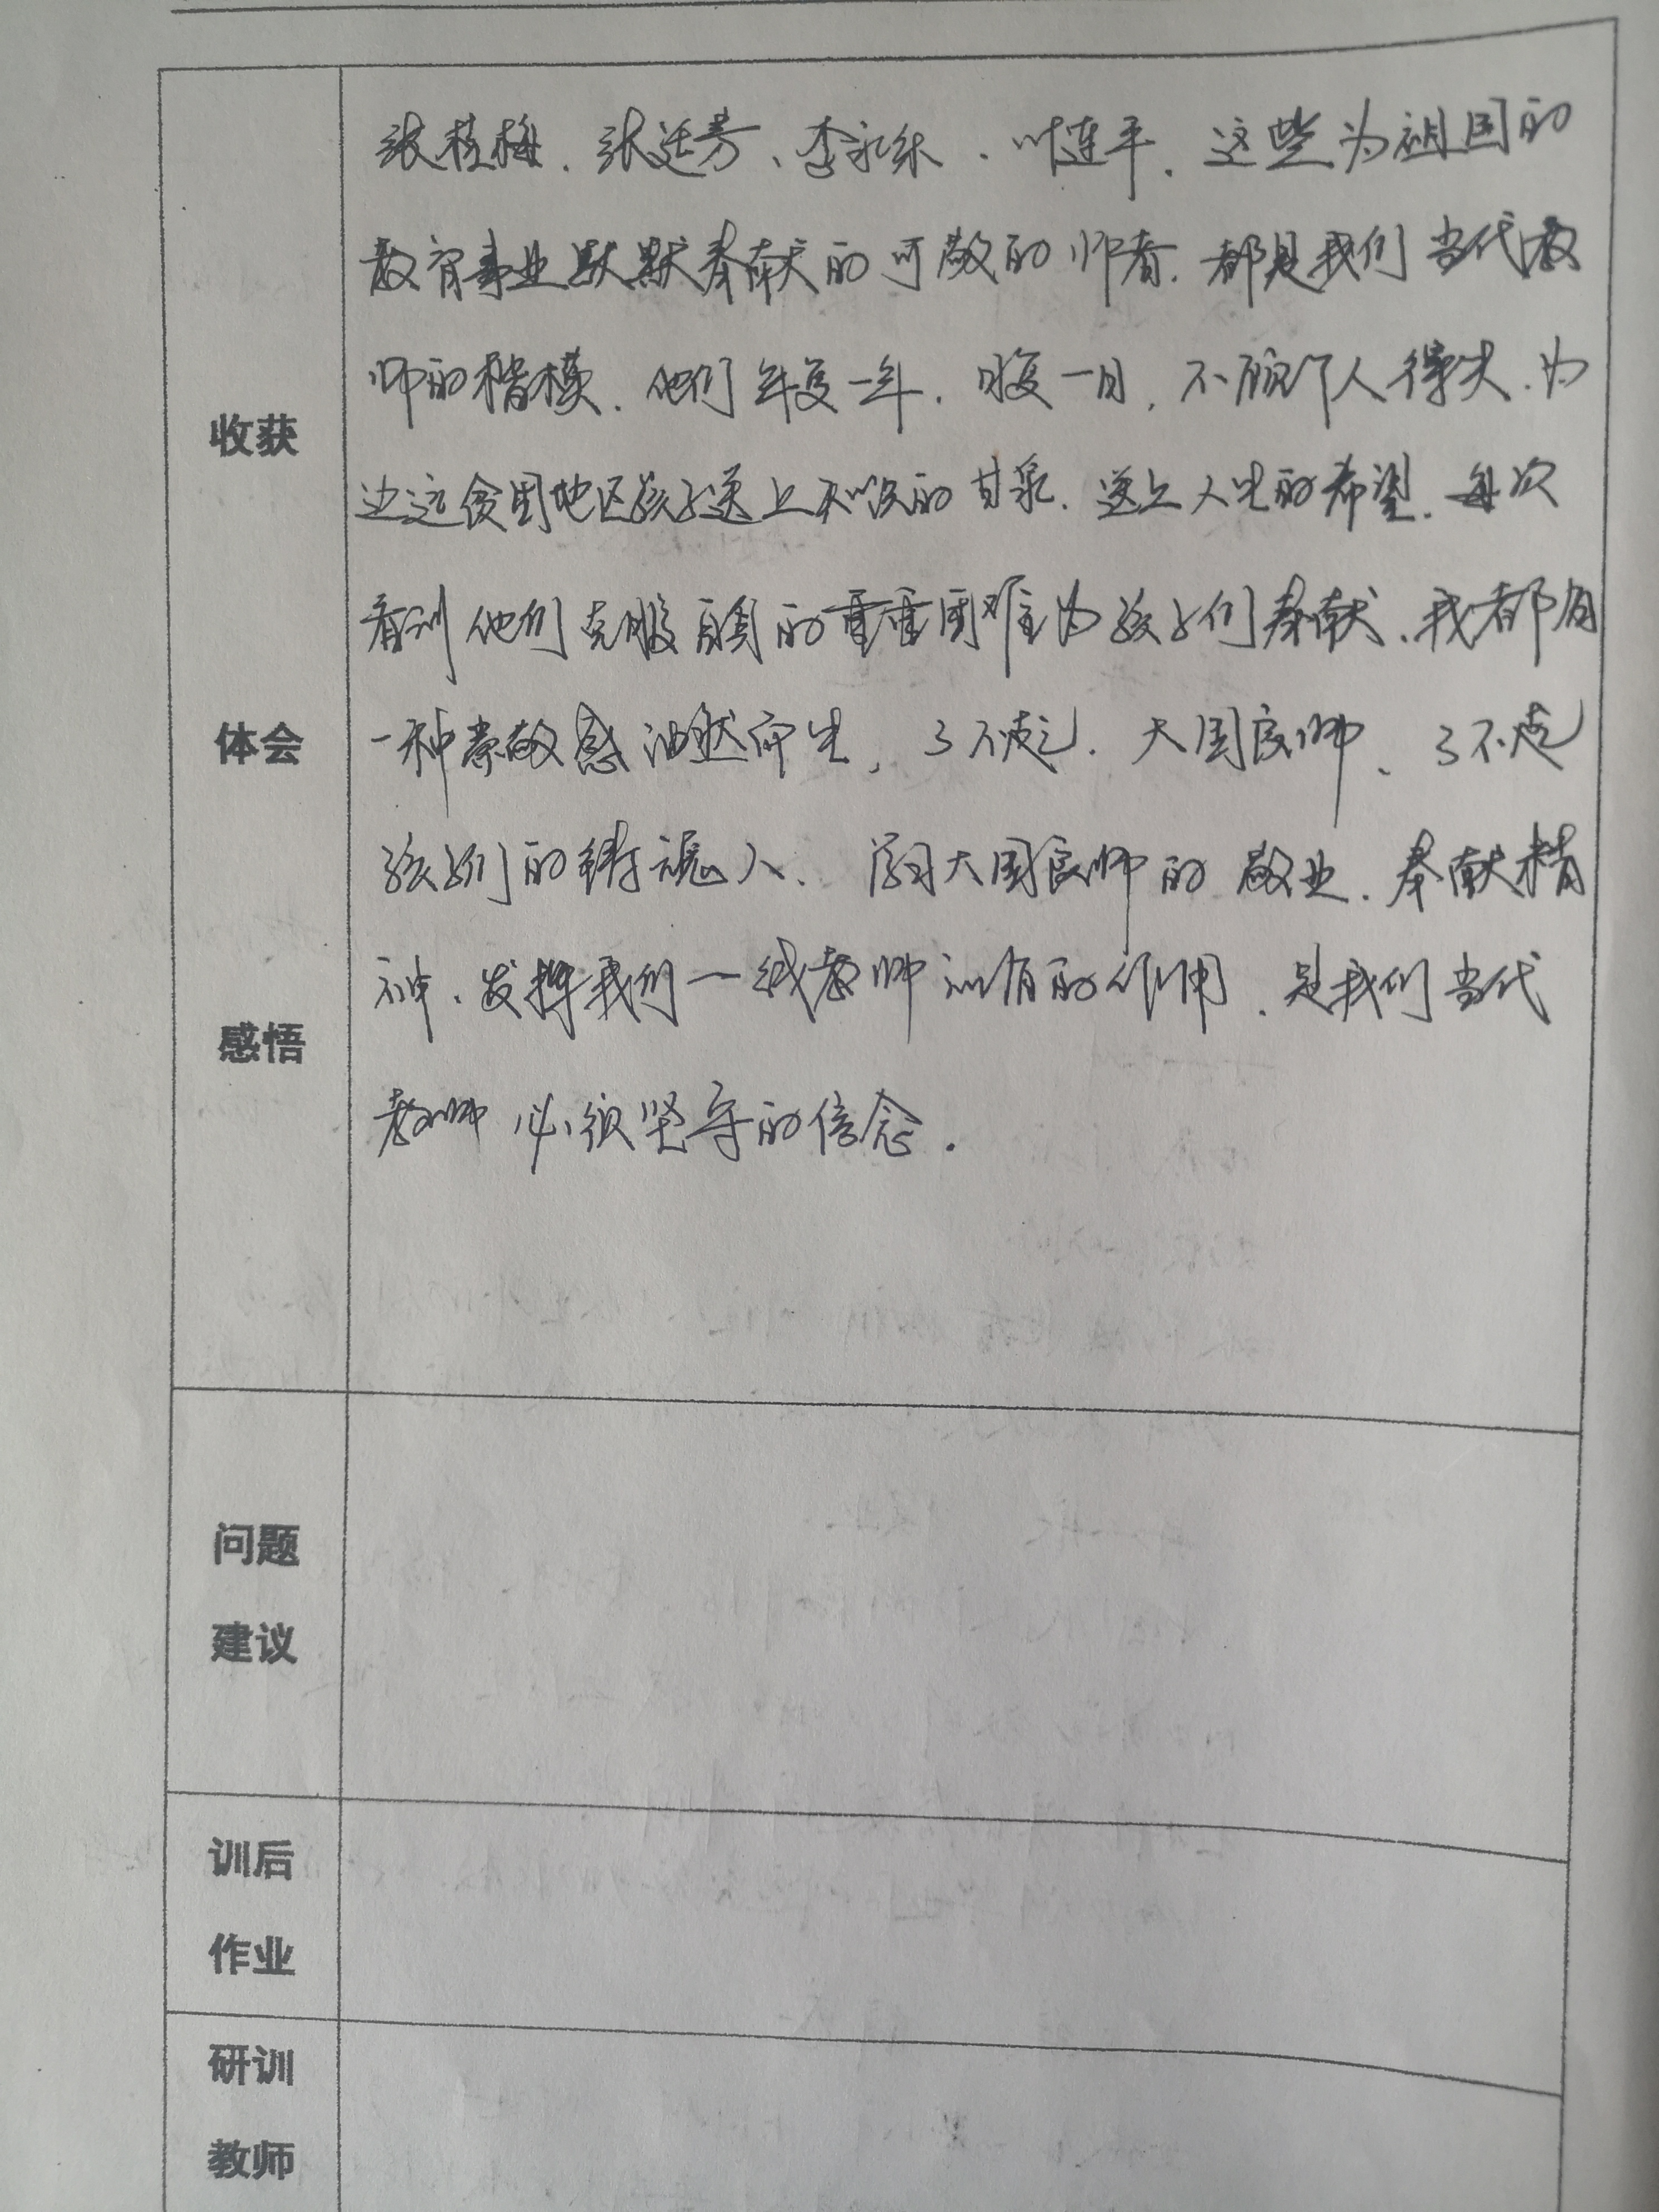 张桂梅、张廷芳、李永乐、叶连平，这些为祖国的
教育事业默默奉献的可敬的师者，都是我们当代教
师的楷模，他们年复一年，日复一日，不顾个人得失，为
边远贫困地区孩子送上知识的甘泉，送上人生的希望，每次
收获
看到他们克服自身的重重困难为孩子们奉献，我都有
一种崇敬感油然而生，了不起，大国良师、了不起
体会
孩子们的铸魂人、学习大国良师的敬业，奉献精
神，发挥我们一线教师该有的作用，是我们当代
感悟
教师必须坚守的信念．
问题
建议
训后
作业
研训
教师